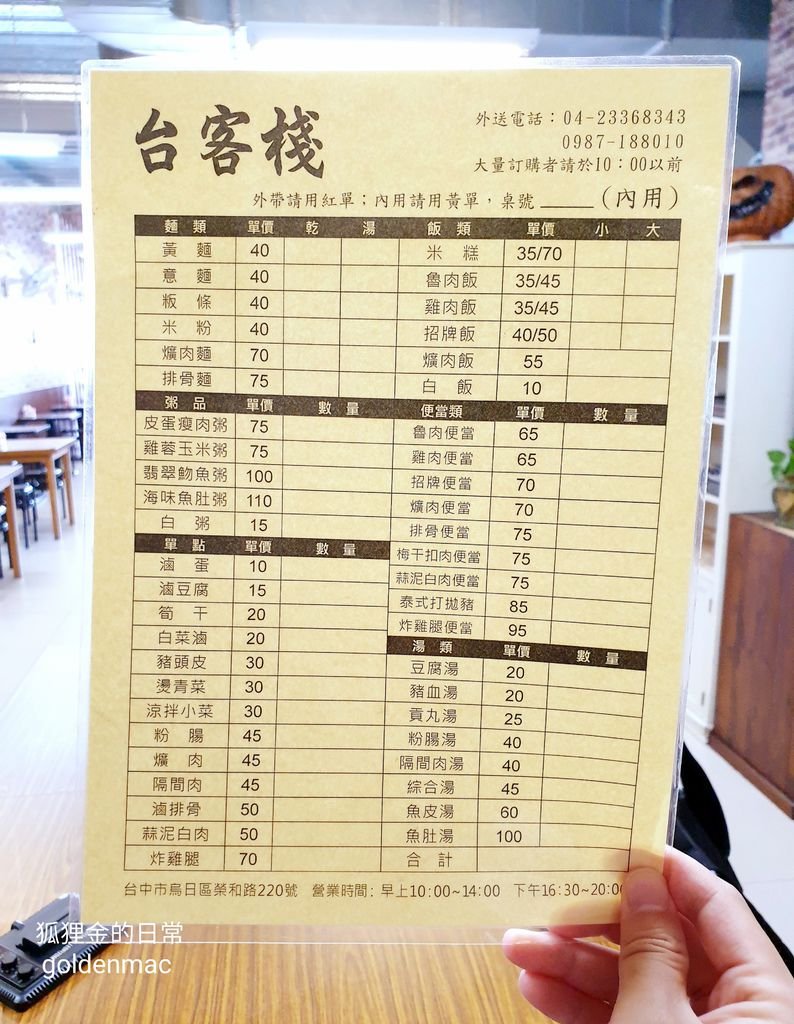 台客棧
外送電話：04-23368343
0987-188010
大量訂購者請於10：00以前
外帶請用紅單；內用請用黃單，桌號＿＿＿(內用)
麵 類 單價 乾 湯
黃 麵 40
意 麵 40
粄 條 40
米 粉 40
爌肉麵 70
排骨麵 75
粥 品 單價 數 量
皮蛋瘦肉粥 75
雞蓉玉米粥 75
翡翠魩魚粥 100
海味魚肚粥 110
白 粥 15
單 點 單價 數 量
滷 蛋 10
滷豆腐 15
筍 干 20
白菜滷 20
豬頭皮 30
燙青菜 30
涼拌小菜 30
粉 腸 45
爌 肉 45
隔間肉 45
滷排骨 50
蒜泥白肉 50
炸雞腿 70
飯 類 單價 小 大
米 糕 35/70
魯肉飯 35/45
雞肉飯 35/45
招牌飯 40/50
爌肉飯 55
白 飯 10
便當類 單價 數 量
魯肉便當 65
雞肉便當 65
招牌便當 70
爌肉便當 70
排骨便當 75
梅干扣肉便當 75
蒜泥白肉便當 75
泰式打拋豬 85
炸雞腿便當 95
湯 類 單價 數 量
豆腐湯 20
豬血湯 20
貢丸湯 25
粉腸湯 40
隔間肉湯 40
綜合湯 45
魚皮湯 60
魚肚湯 100
合 計
台中市烏日區榮和路220號 營業時間: 早上10:00~14:00 下午16:30~20:00
狐狸金的日常
goldenmac